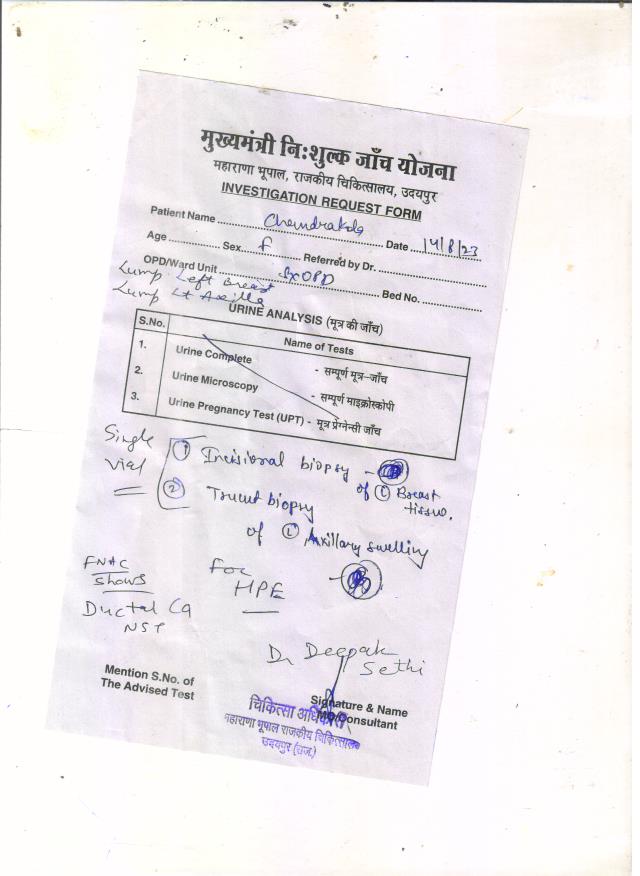 मुख्यमंत्री निःशुल्क जाँच योजना
महाराणा भूपाल, राजकीय चिकित्सालय, उदयपुर
INVESTIGATION REQUEST FORM
Patient Name Chandrakala Date 14/8/23
Age Sex F Referred by Dr.
OPD/Ward Unit SxOPD Bed No.
Lump Left Breast
Lump Lt Axilla
URINE ANALYSIS (मूत्र की जाँच)
S.No. Name of Tests
1. Urine Complete - सम्पूर्ण मूत्र-जाँच
2. Urine Microscopy - सम्पूर्ण माइक्रोस्कोपी
3. Urine Pregnancy Test (UPT) - मूत्र प्रेग्नेन्सी जाँच
Single vial
① Incisional biopsy - of Ⓛ Breast tissue.
② Trucut biopsy
of Ⓛ Axillary swelling
FNAC shows
Ductal Ca
NST
For HPE
Dr Deepak Sethi
Mention S.No. of
The Advised Test
Signature & Name
MO/Consultant
चिकित्सा अधिकारी
महाराणा भूपाल राजकीय चिकित्सालय
उदयपुर (राज.)